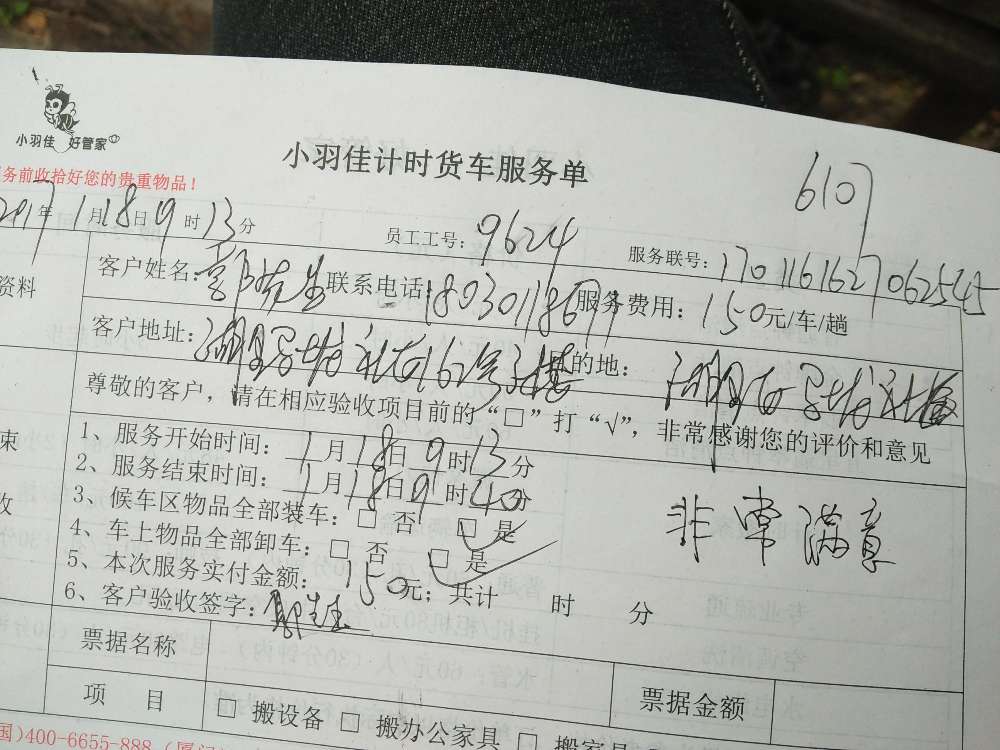 小羽佳 好管家
小羽佳计时货车服务单
610
务前收拾好您的贵重物品！
2017年1月18日9时13分 员工工号：9624 服务联号：1701161627062545
资料 客户姓名：郭先生 联系电话：18030118677 服务费用：150元/车/趟
客户地址： 社 162号 的地：
尊敬的客户，请在相应验收项目前的“□”打“√”，非常感谢您的评价和意见
束 1、服务开始时间：1月18日9时13分
2、服务结束时间：1月18日9时40分
收 3、候车区物品全部装车：□ 否 □ 是
4、车上物品全部卸车：□ 否 □ 是
非常满意
5、本次服务实付金额：150元；共计 时 分
6、客户验收签字：郭先生
票据名称 票据金额
项 目 □ 搬设备 □ 搬办公家具 □ 搬家具
国)400-6655-888